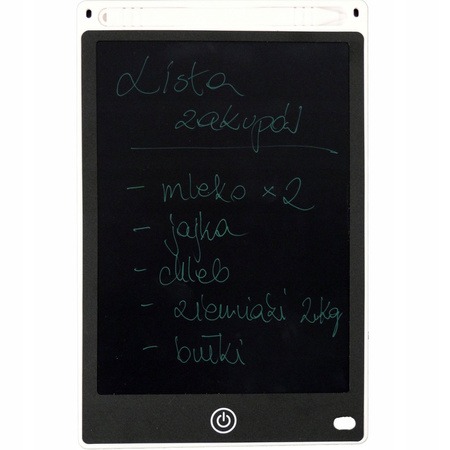 Lista
zakupów
- mleko x 2
- jajka
- chleb
- ziemniaki 2kg
- bułki